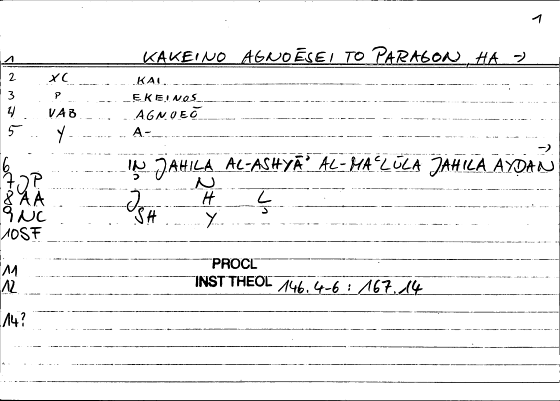 1
1 KAKEINO AGNOĒSEI TO PARAGON, HA →
2 XC KAI
3 P EKEINOS
4 VAB AGNOEŌ
5 Y A-
→
6 IN JAHILA AL-ASHYĀʾ AL-MAʿLŪLA JAHILA AYḌAN
7 JP ʾ N
8 AA J H L
9 NC SH Y ʾ
10 SF
11 PROCL
12 INST THEOL 146.4-6 : 167.14
14?